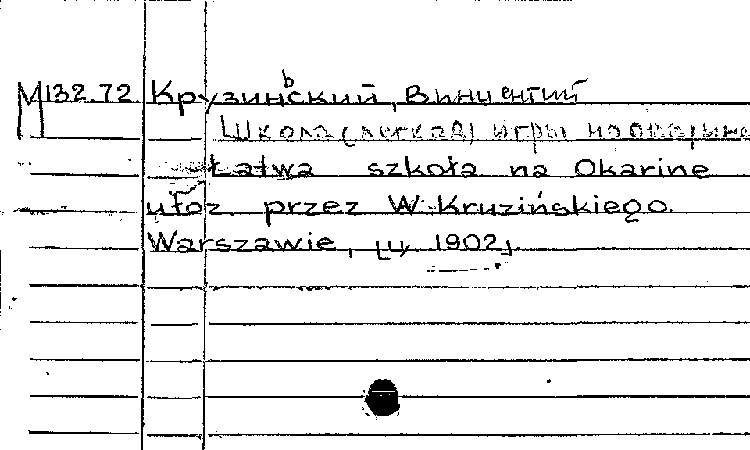 М132.72 Крузинський, Винцентий
Школа (легкая) игры на окарине
Łatwa szkoła na Okarine
ułoz. przez W. Kruzińskiego.
Warszawie, [ц, 1902].